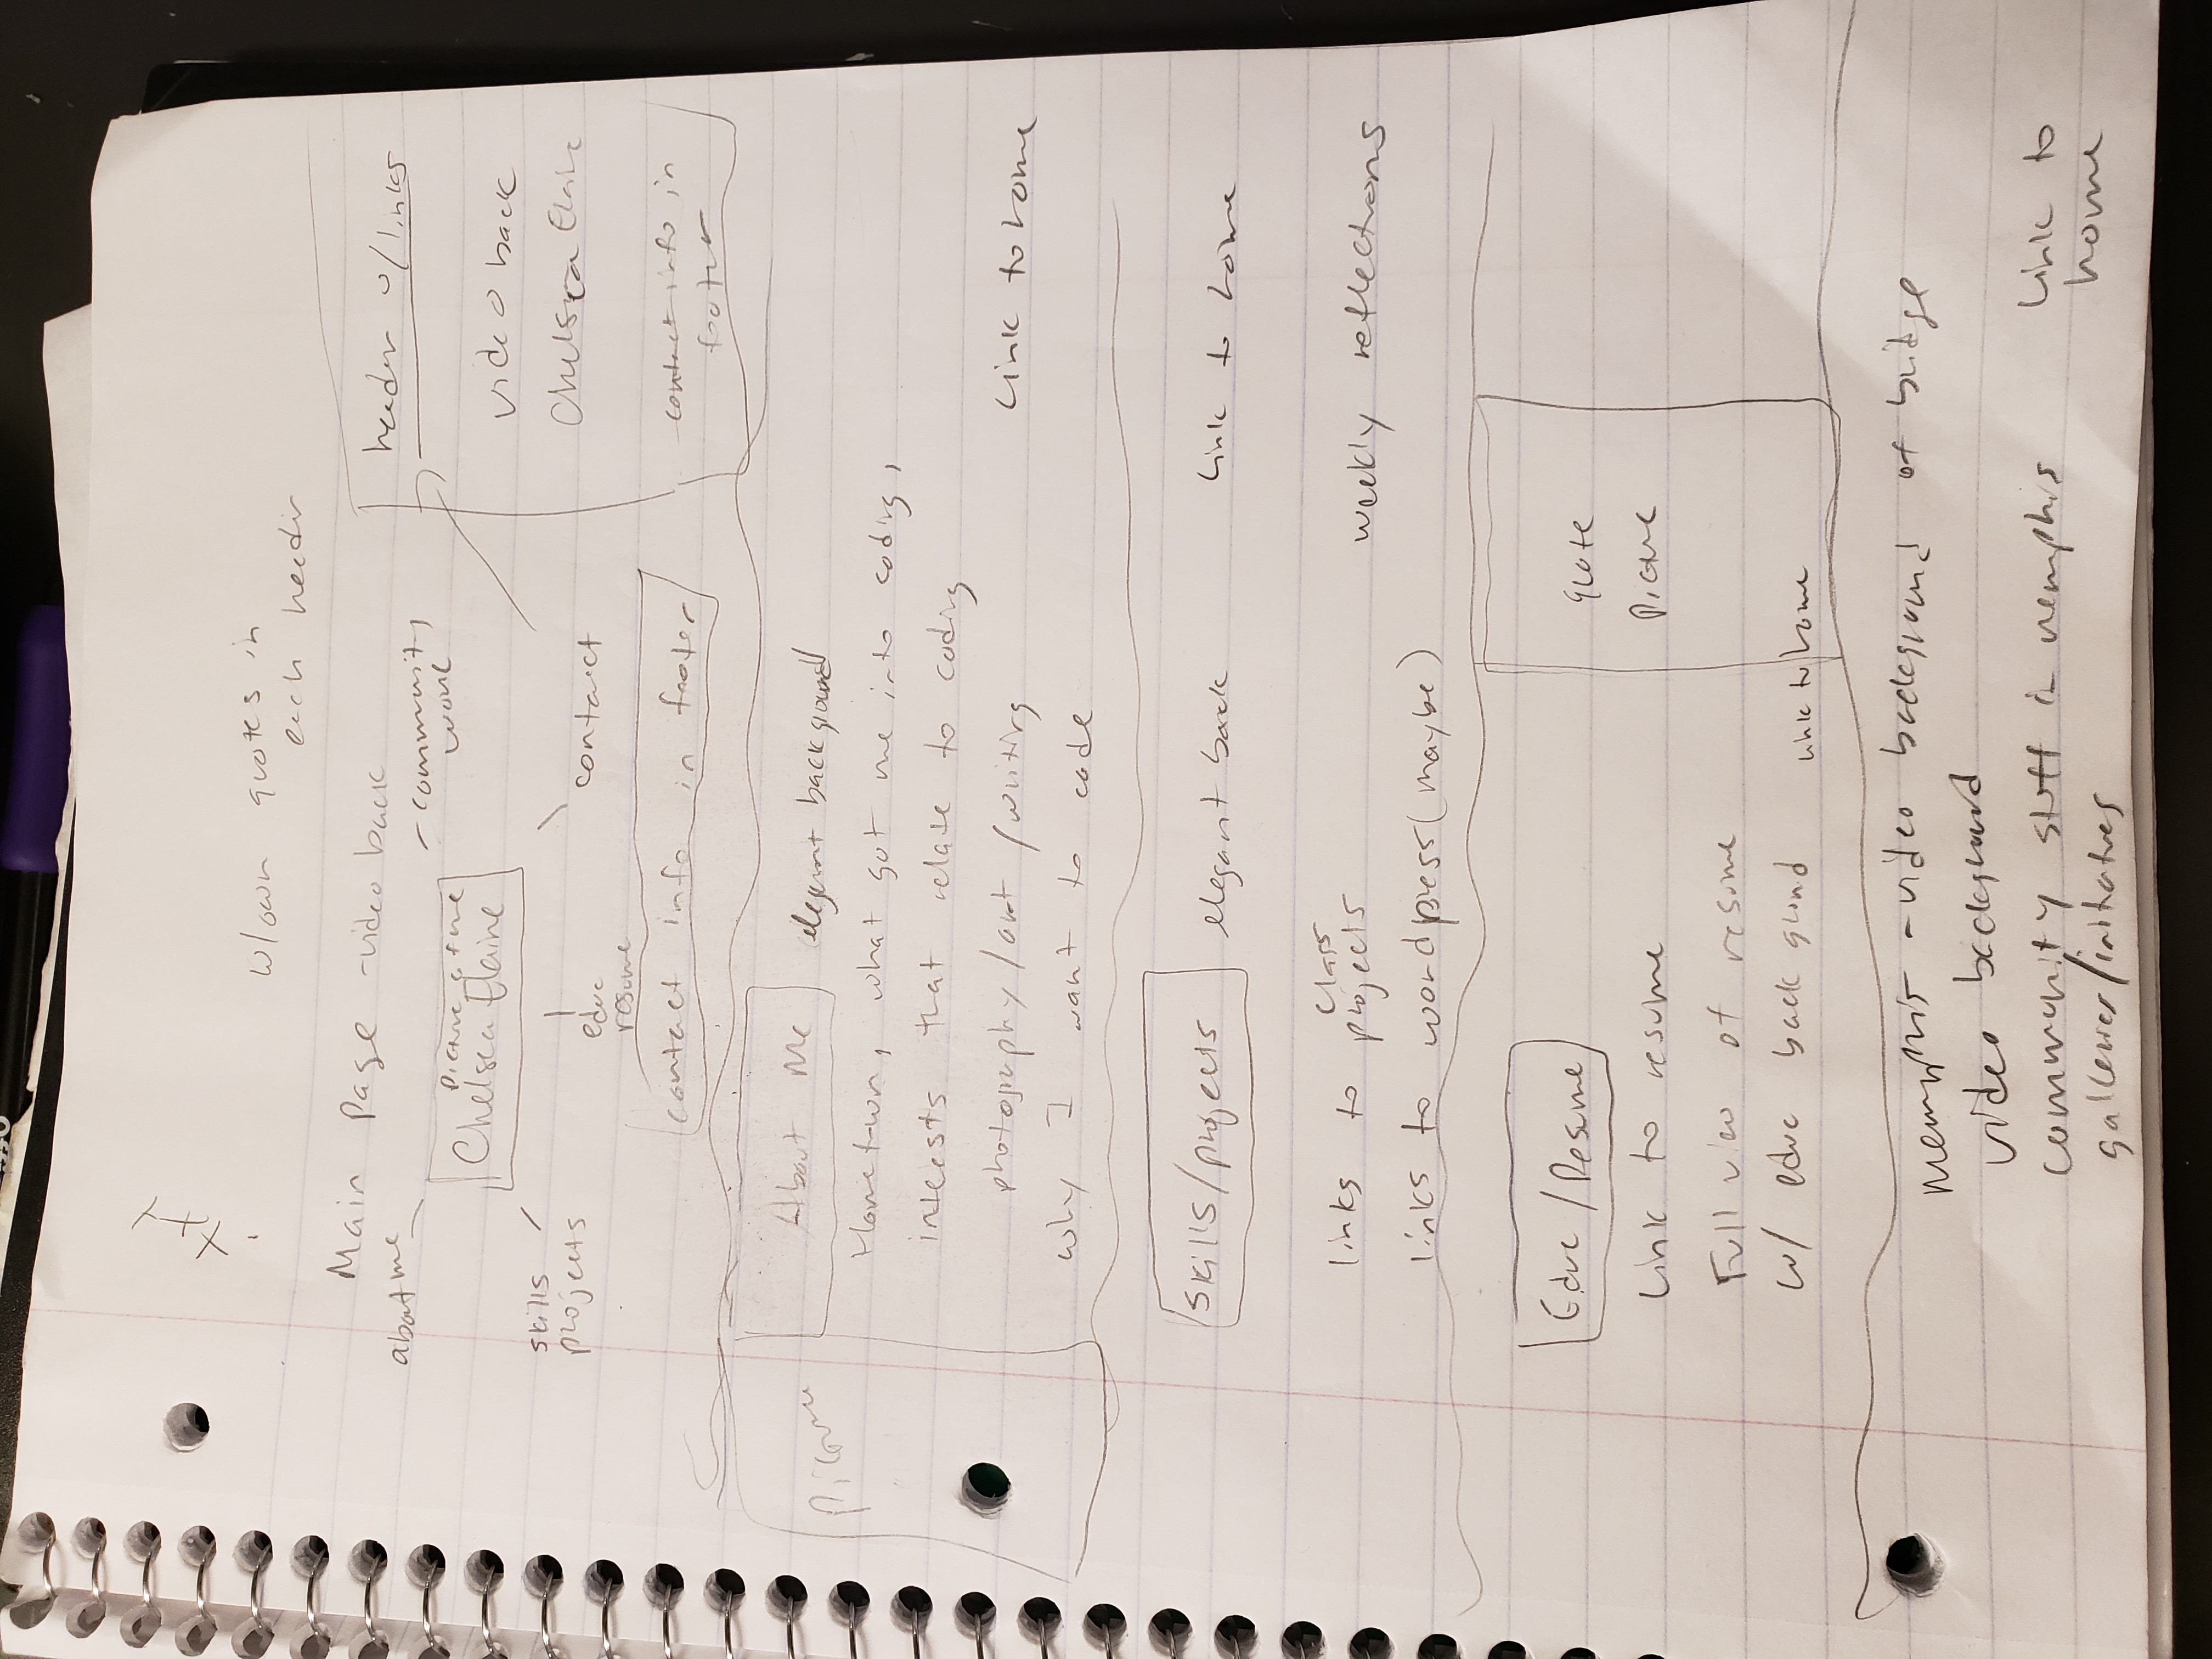 w/own quotes in
each header
Main page - video back
about me
- community
work
picture of me
Chelsea Elaine
skills
projects
educ
resume
contact
contact info in footer
header w/links
video back
Chelsea Elaine
contact info in
footer
picture
About Me
elegant background
Hometown, what got me into coding,
interests that relate to coding
photography/art/writing
link to home
why I want to code
skills/projects
elegant back
link to home
links to class projects
weekly reflections
links to wordpress (maybe)
Educ/Resume
quote
picture
link to resume
Full view of resume
w/ educ background
link to home
memphis - video background of bridge
video background
community stuff in memphis
galleries/initiatives
link to
home